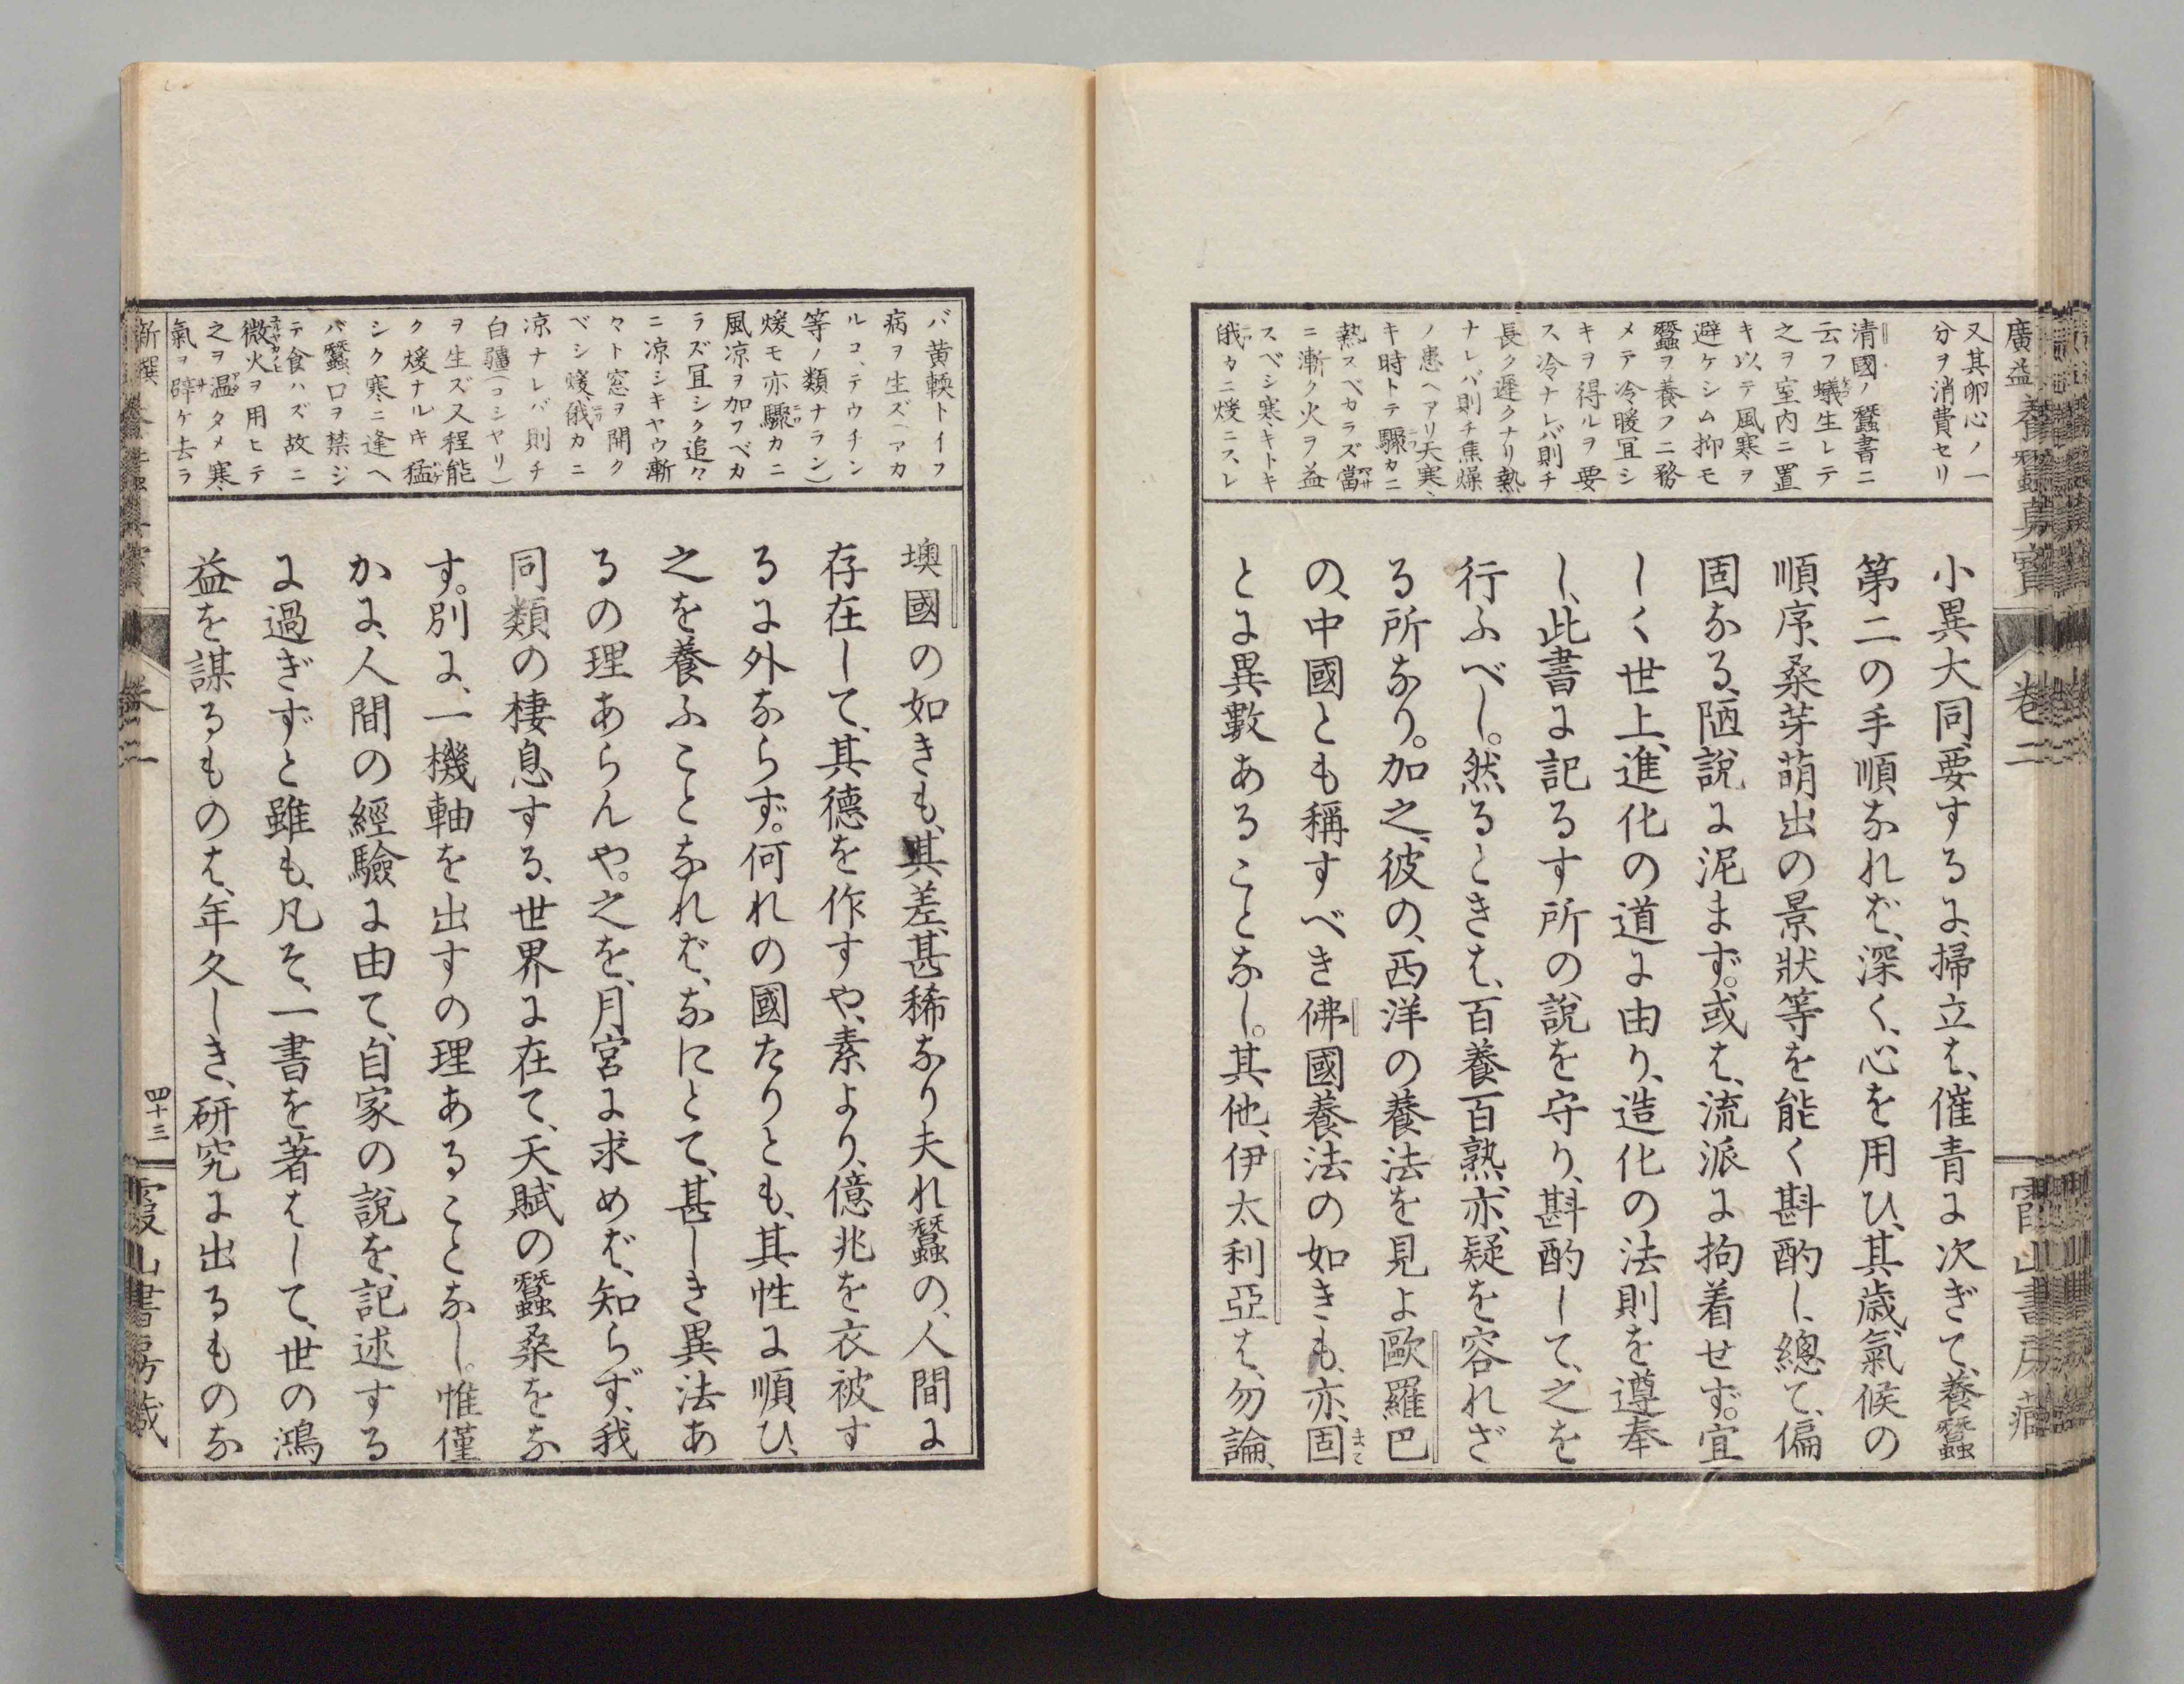 廣益養蠶真寶
卷二
霞山書房藏
又其卵心ノ一
分ヲ消費セリ
清國ノ蠶書ニ
云フ蟻生レテ
之ヲ室内ニ置
キ以テ風寒ヲ
避ケシム抑モ
蠶ヲ養フニ務
メテ冷暖冝シ
キヲ得ルヲ要
ス冷ナレバ則チ
長ク遲クナリ熱
ナレバ則チ焦燥
ノ患ヘアリ天寒
キ時トテ驟カニ
熱スベカラズ當
ニ漸ク火ヲ益
スベシ寒キトキ
俄カニ煖ニスレ
小異大同、要するに、掃立は、催青に次ぎて、養蠶
第二の手順なれば、深く、心を用ひ、其歳氣候の
順序、桑芽萌出の景狀等を能く斟酌し、總て、偏
固なる、陋說に泥まず。或は、流派に拘着せず。宜
しく世上、進化の道に由り、造化の法則を遵奉
し、此書に記るす所の說を守り、斟酌して、之を
行ふべし。然るときは、百養百熟、亦、疑を容れざ
る所なり。加之、彼の、西洋の養法を見よ歐羅巴
の、中國とも稱すべき佛國養法の如きも、亦、固
とに異數あることなし。其他、伊太利亞は、勿論、
バ黄輭トイフ
病ヲ生ズ(アカ
ルコ、テウチン
等ノ類ナラン)
煖モ亦驟カニ
風凉ヲ加フベカ
ラズ冝シク追々
ニ凉シキヤウ漸
々ト窓ヲ開ク
ベシ煖俄カニ
凉ナレバ則チ
白疆(コシヤリ)
ヲ生ズ又程能
ク煖ナルキ猛
シク寒ニ逢ヘ
バ蠶口ヲ禁ジ
テ食ハズ故ニ
微火ヲ用ヒテ
之ヲ温タメ寒
氣ヲ辟ケ去ラ
墺國の如きも、其差、甚稀なり夫れ蠶の、人間に
存在して、其德を作すや、素より、億兆を衣被す
るに外ならず。何れの國たりとも、其性に順ひ、
之を養ふことなれば、なにとて、甚しき異法あ
るの理あらんや。之を、月宮に求めば、知らず、我
同類の棲息する、世界に在て、天賦の蠶桑をな
す。別に、一機軸を出すの理あることなし。惟僅
かに、人間の經驗に由て、自家の說を、記述する
に過ぎずと雖も、凡そ、一書を著はして、世の鴻
益を謀るものは、年久しき、研究に出るものな
新撰
卷二
四十三
霞山書房藏